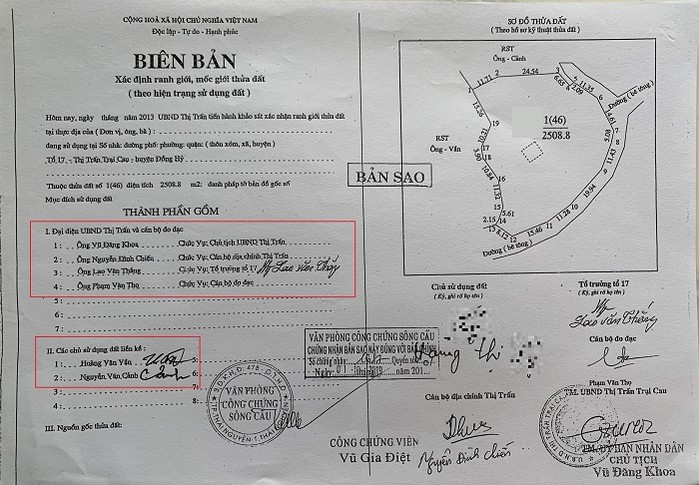 CỘNG HOÀ XÃ HỘI CHỦ NGHĨA VIỆT NAM
Độc lập - Tự do - Hạnh phúc
BIÊN BẢN
Xác định ranh giới, mốc giới thửa đất
( theo hiện trạng sử dụng đất )
Hôm nay, ngày tháng năm 2013 UBND Thị Trấn tiến hành khảo sát xác nhận ranh giới thửa đất
tại thực địa của ( Đơn vị, ông, bà ) :
đang sử dụng tại Số nhà: đường phố: phường: quận: ( thôn xóm, xã, huyện)
Tổ 17 - Thị Trấn Trại Cau - huyện Đồng Hỷ
Thuộc thửa đất số 1(46) diện tích 2508.8 m2: danh pháp tờ bản đồ gốc số
Mục đích sử dụng đất
THÀNH PHẦN GỒM
I. Đại diện UBND Thị Trấn và cán bộ đo đạc
1 : Ông Vũ Đăng Khoa Chức Vụ: Chủ tịch UBND Thị Trấn
2 : Ông Nguyễn Đình Chiến Chức Vụ: Cán bộ địa chính Thị Trấn
3 : Ông Lao Văn Thắng Chức Vụ: Tổ trưởng tổ 17 Lao Văn Thắng
4 : Ông Phạm Văn Thọ Chức Vụ: Cán bộ đo đạc
5 :
6 :
7 :
II. Các chủ sử dụng đất liền kề :
1 : Hoàng Văn Vân 5 :
2 : Nguyễn Văn Cảnh Cảnh 6 :
3 : 7 :
4 : 8 :
III. Nguồn gốc thửa đất:
BẢN SAO
VĂN PHÒNG CÔNG CHỨNG SÔNG CẦU
CHỨNG NHẬN BẢN SAO NÀY ĐÚNG VỚI BẢN CHÍNH
Số chứng thực Quyển số
Ngày 01 201
VĂN PHÒNG
CÔNG CHỨNG
SÔNG CẦU
CÔNG CHỨNG VIÊN
Vũ Gia Điệt
SƠ ĐỒ THỬA ĐẤT
(Theo hồ sơ kỹ thuật thửa đất)
RST
Ông - Cảnh
RST
Ông - Vân
1(46)
2508.8
1
11.21
24.54
3
6.65
2.09
11.35
6
14.61
7
8
5.08
11.43
19.94
11.28
10
15.46
12
8.12
13
2.15
14
5.61
15
11.32
16
10.84
18
3.90
17
10.21
19
14.26
Đường ( bê tông)
Đường (bê tông)
Chủ sử dụng
( Ký, ghi rõ họ tên )
Hoàng Thị
Tổ trưởng tổ 17
( Ký, ghi rõ họ tên )
Lao Văn Thắng
Cán bộ đo đạc
Phạm Văn Thọ
Cán bộ địa chính Thị Trấn
Nguyễn Đình Chiến
TM. UBND Thị Trấn Trại Cau
TM. ỦY BAN NHÂN DÂN
CHỦ TỊCH
Vũ Đăng Khoa